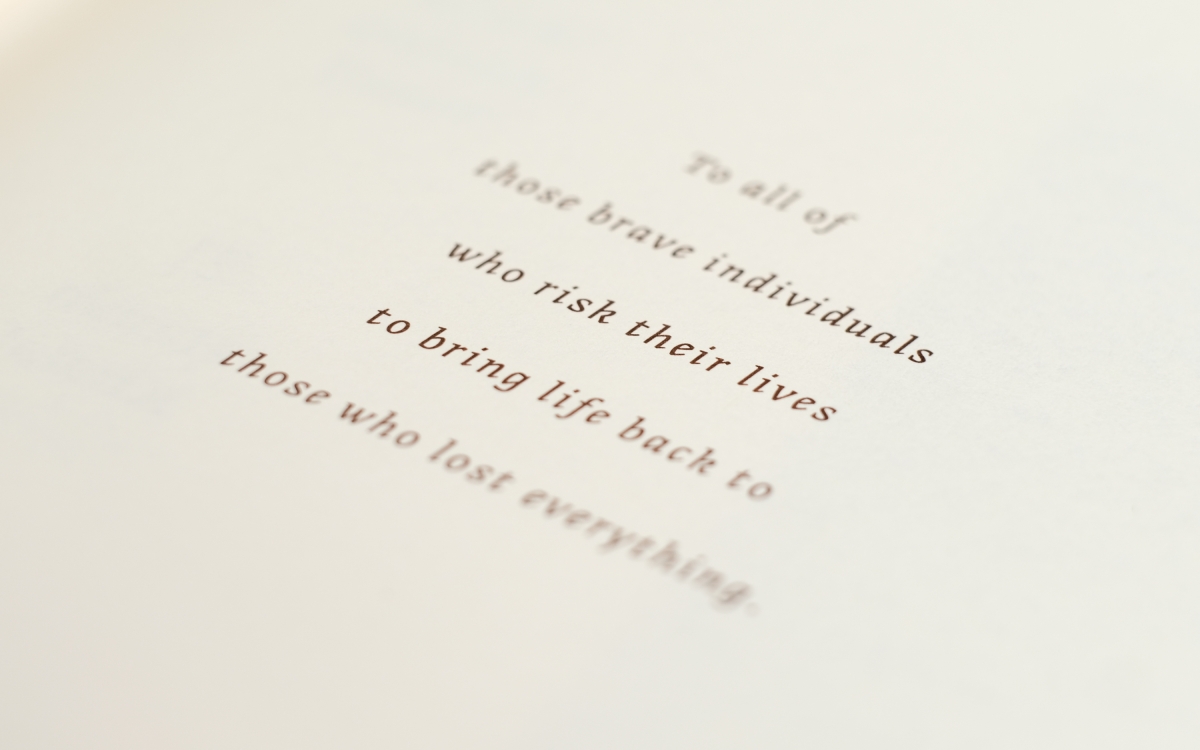 To all of
those brave individuals
who risk their lives
to bring life back to
those who lost everything.